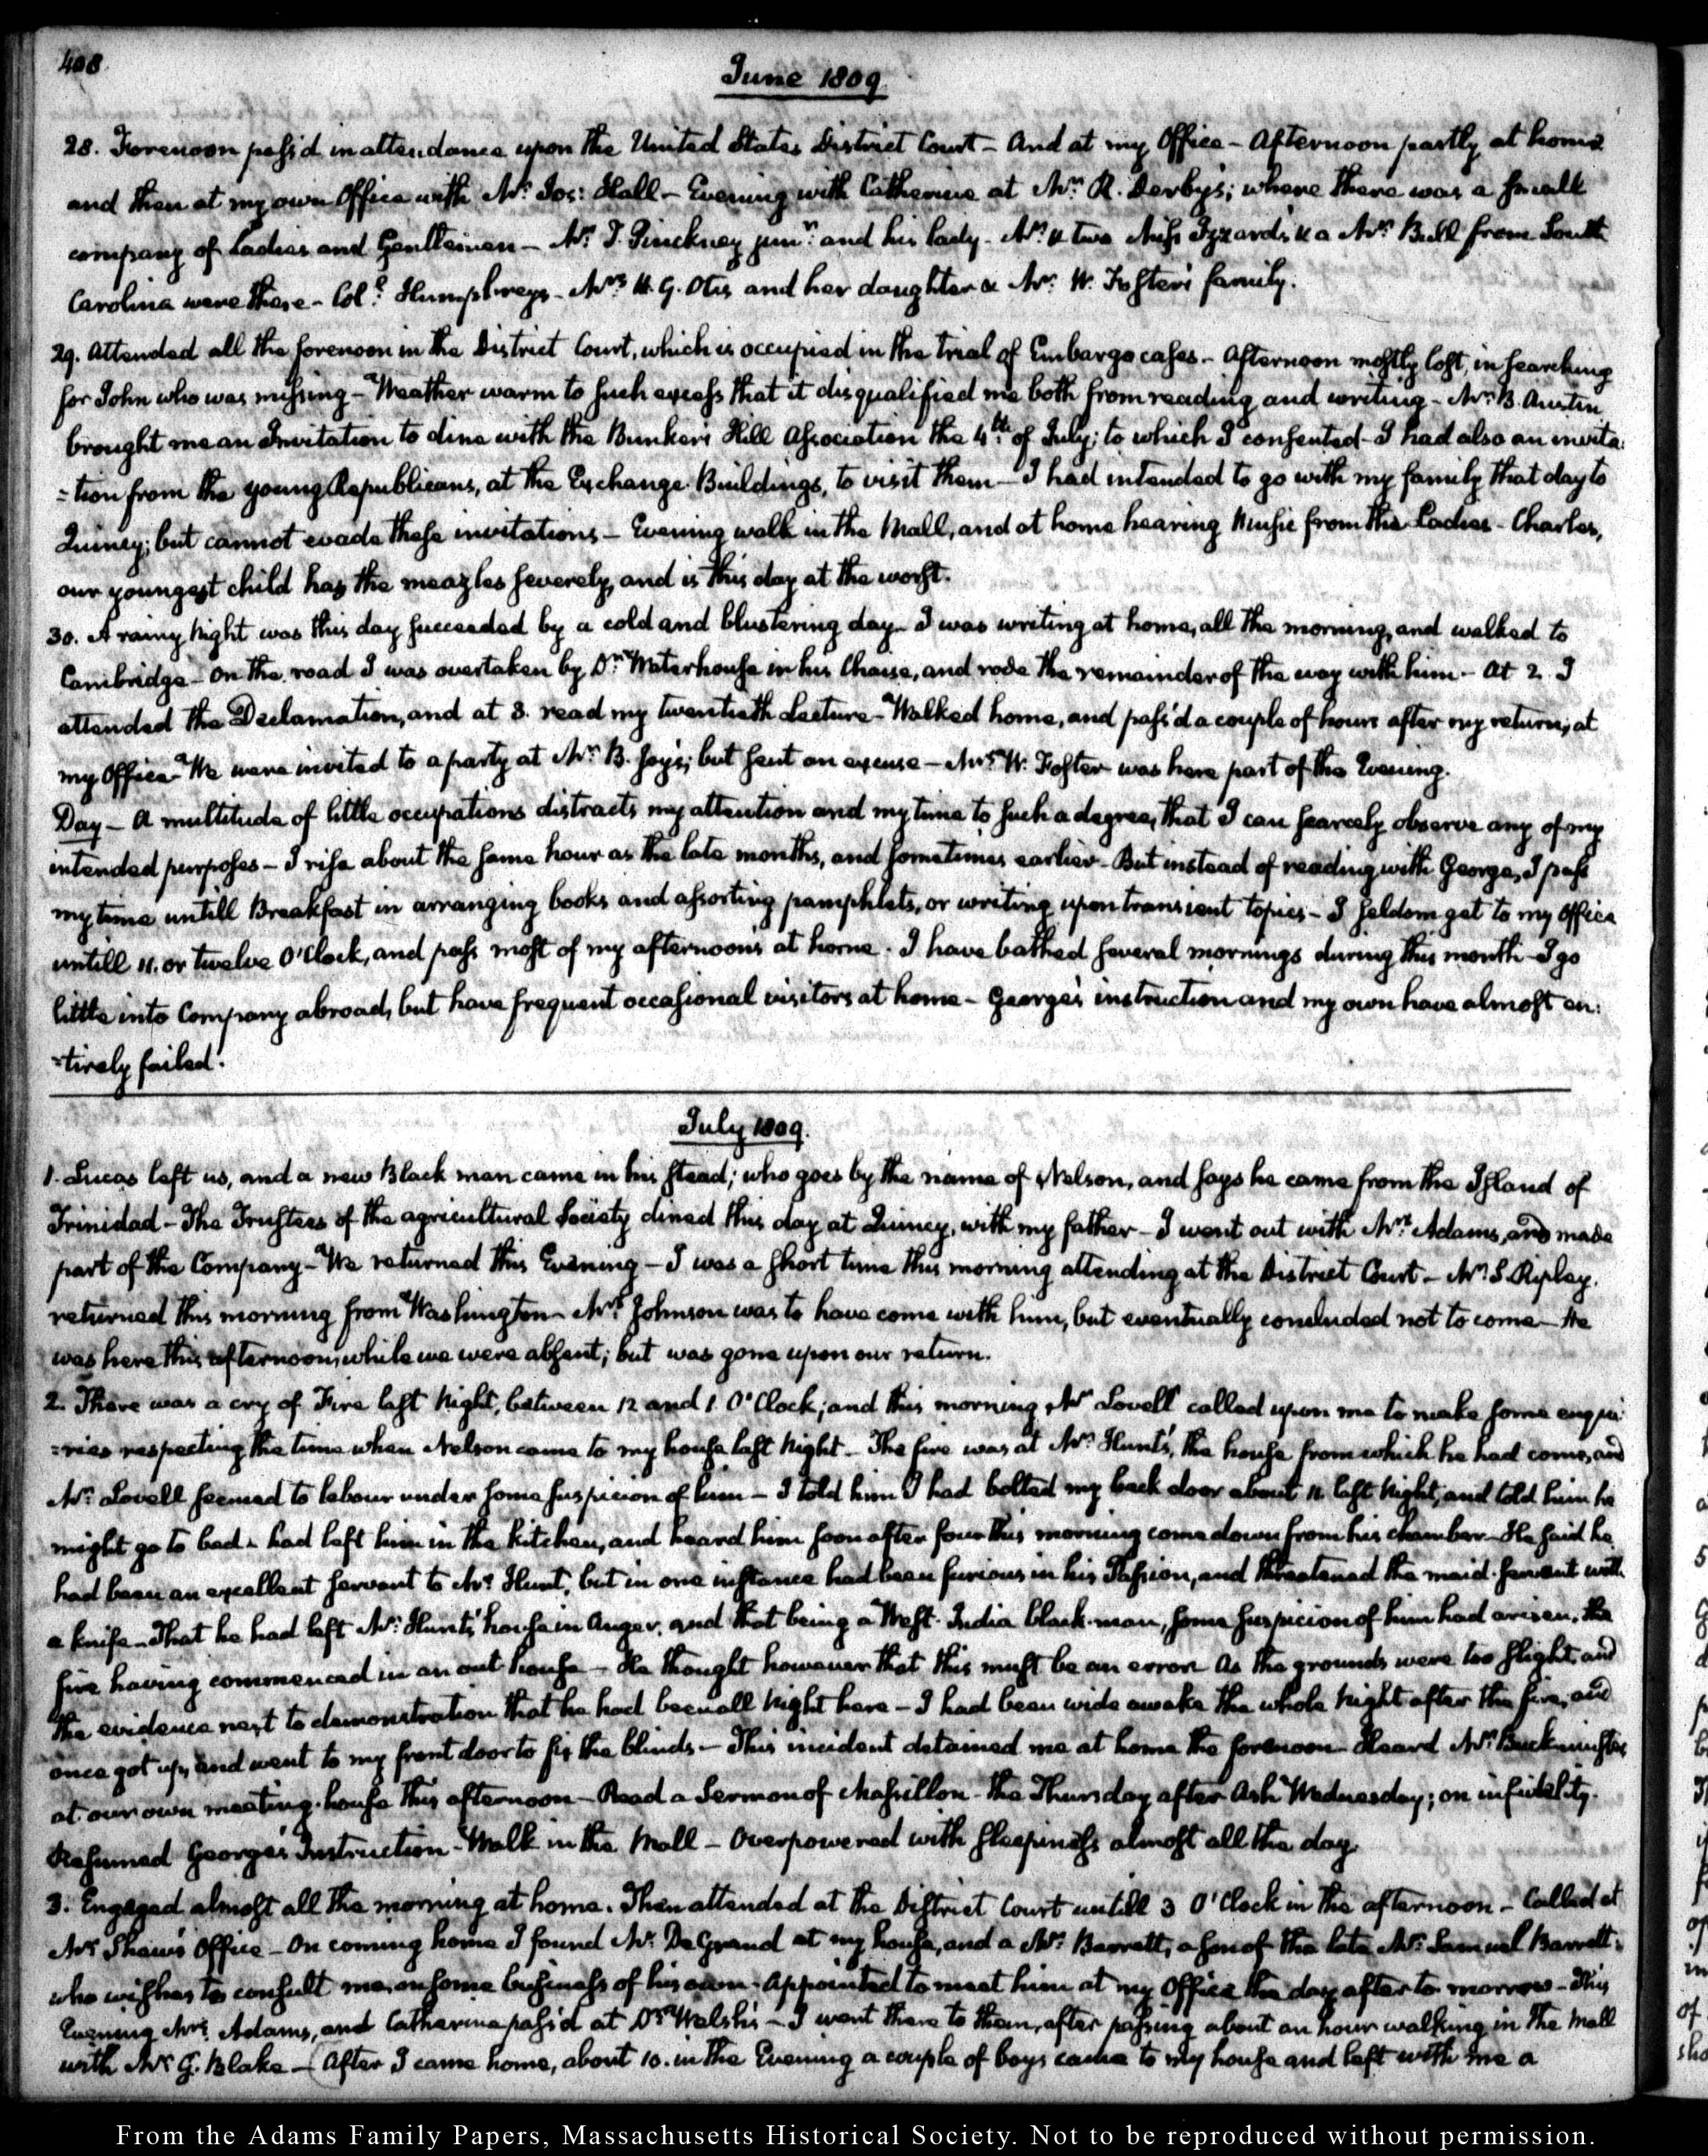 408
June 1809
28. Forenoon pass'd in attendance upon the United States District Court - And at my Office - Afternoon partly at home
and then at my own Office with Mr. Jos: Hall - Evening with Catherine at Mrs. R. Derby's; where there was a small
company of Ladies and Gentlemen - Mr. T. Pinckney junr. and his lady - Mr. & two Miss Izzards & a Mrs. Bull from South
Carolina were there - Coll. Humphreys - Mrs. H. G. Otis and her daughter & Mr. W. Foster's family.
29. Attended all the forenoon in the District Court, which is occupied in the trial of Embargo cases - Afternoon mostly lost, in searching
for John who was missing - Weather warm to such excess that it disqualified me both from reading and writing - Mr. B. Austin
brought me an Invitation to dine with the Bunker's Hill Association the 4th. of July; to which I consented - I had also an invita:
=tion from the young Republicans, at the Exchange Buildings, to visit them - I had intended to go with my family that day to
Quincy; but cannot evade these invitations - Evening walk in the Mall, and at home hearing Music from the Ladies - Charles,
our youngest child has the meazles severely, and is this day at the worst.
30. A rainy Night was this day succeeded by a cold and blustering day - I was writing at home, all the morning, and walked to
Cambridge - On the road I was overtaken by Dr. Waterhouse in his Chaise, and rode the remainder of the way with him - At 2. I
attended the Declamation, and at 3. read my twentieth Lecture - Walked home, and pass'd a couple of hours after my return, at
my Office - We were invited to a party at Mr. B. Joy's; but sent an excuse - Mrs. W. Foster was here part of the Evening.
Day - A multitude of little occupations distracts my attention and my time to such a degree, that I can scarcely observe any of my
intended purposes - I rise about the same hour as the late months, and sometimes earlier - But instead of reading with George, I pass
my time untill Breakfast in arranging books and assorting pamphlets, or writing upon transient topics - I seldom get to my Office
untill 11. or twelve O'Clock, and pass most of my afternoons at home. I have bathed several mornings during this month - I go
little into Company abroad, but have frequent occasional visitors at home - George's instruction and my own have almost en:
=tirely failed.
July 1809.
1. Lucas left us, and a new Black man came in his stead; who goes by the name of Nelson, and says he came from the Island of
Trinidad - The Trustees of the agricultural Society dined this day at Quincy, with my father - I went out with Mrs. Adams, and made
part of the Company - We returned this Evening - I was a short time this morning attending at the District Court - Mr. S. Ripley.
returned this morning from Washington - Mrs. Johnson was to have come with him, but eventually concluded not to come - He
was here this afternoon, while we were absent; but was gone upon our return.
2. There was a cry of Fire last Night, between 12 and 1. O'Clock; and this morning, Mr. Lovell called upon me to make some enqui:
=ries respecting the time when Nelson came to my house last Night - The fire was at Mr. Hunt's, the house from which he had come, and
Mr. Lovell seemed to labour under some suspicion of him - I told him I had bolted my back door about 11. last Night, and told him he
might go to bed - had left him in the kitchen, and heard him soon after four this morning come down from his chamber - He said he
had been an excellent servant to Mr. Hunt, but in one instance had been furious in his Passion, and threatened the maid-servant with
a knife - That he had left Mr. Hunts' house in Anger, and that being a West-India black-man, some suspicion of him had arisen, the
fire having commenced in an out house - He thought however that this must be an error as the grounds were too slight, and
the evidence next to demonstration that he had been all Night here - I had been wide awake the whole Night after the fire, and
once got up, and went to my front door to fix the blinds - This incident detained me at home the forenoon - Heard Mr. Buckminster
at our own meeting-house this afternoon - Read a Sermon of Massillon - the Thursday after Ash Wednesday; on infidelity.
Resumed George's Instruction - Walk in the Mall - Overpowered with sleepiness almost all the day.
3. Engaged almost all the morning at home. Then attended at the District Court untill 3 O'Clock in the afternoon - Called at
Mr. Shaw's Office - On coming home I found Mr. De Grand at my house, and a Mr. Barrett, a son of the late Mr. Samuel Barrett:
who wishes to consult me, on some business of his own - Appointed to meet him at my Office the day after to-morrow - This
Evening Mrs. Adams, and Catharine pass'd at Dr. Welsh's - I went there to them, after passing about an hour walking in the Mall
with Mr. G. Blake - (After I came home, about 10. in the Evening a couple of boys came to my house and left with me a
From the Adams Family Papers, Massachusetts Historical Society. Not to be reproduced without permission.